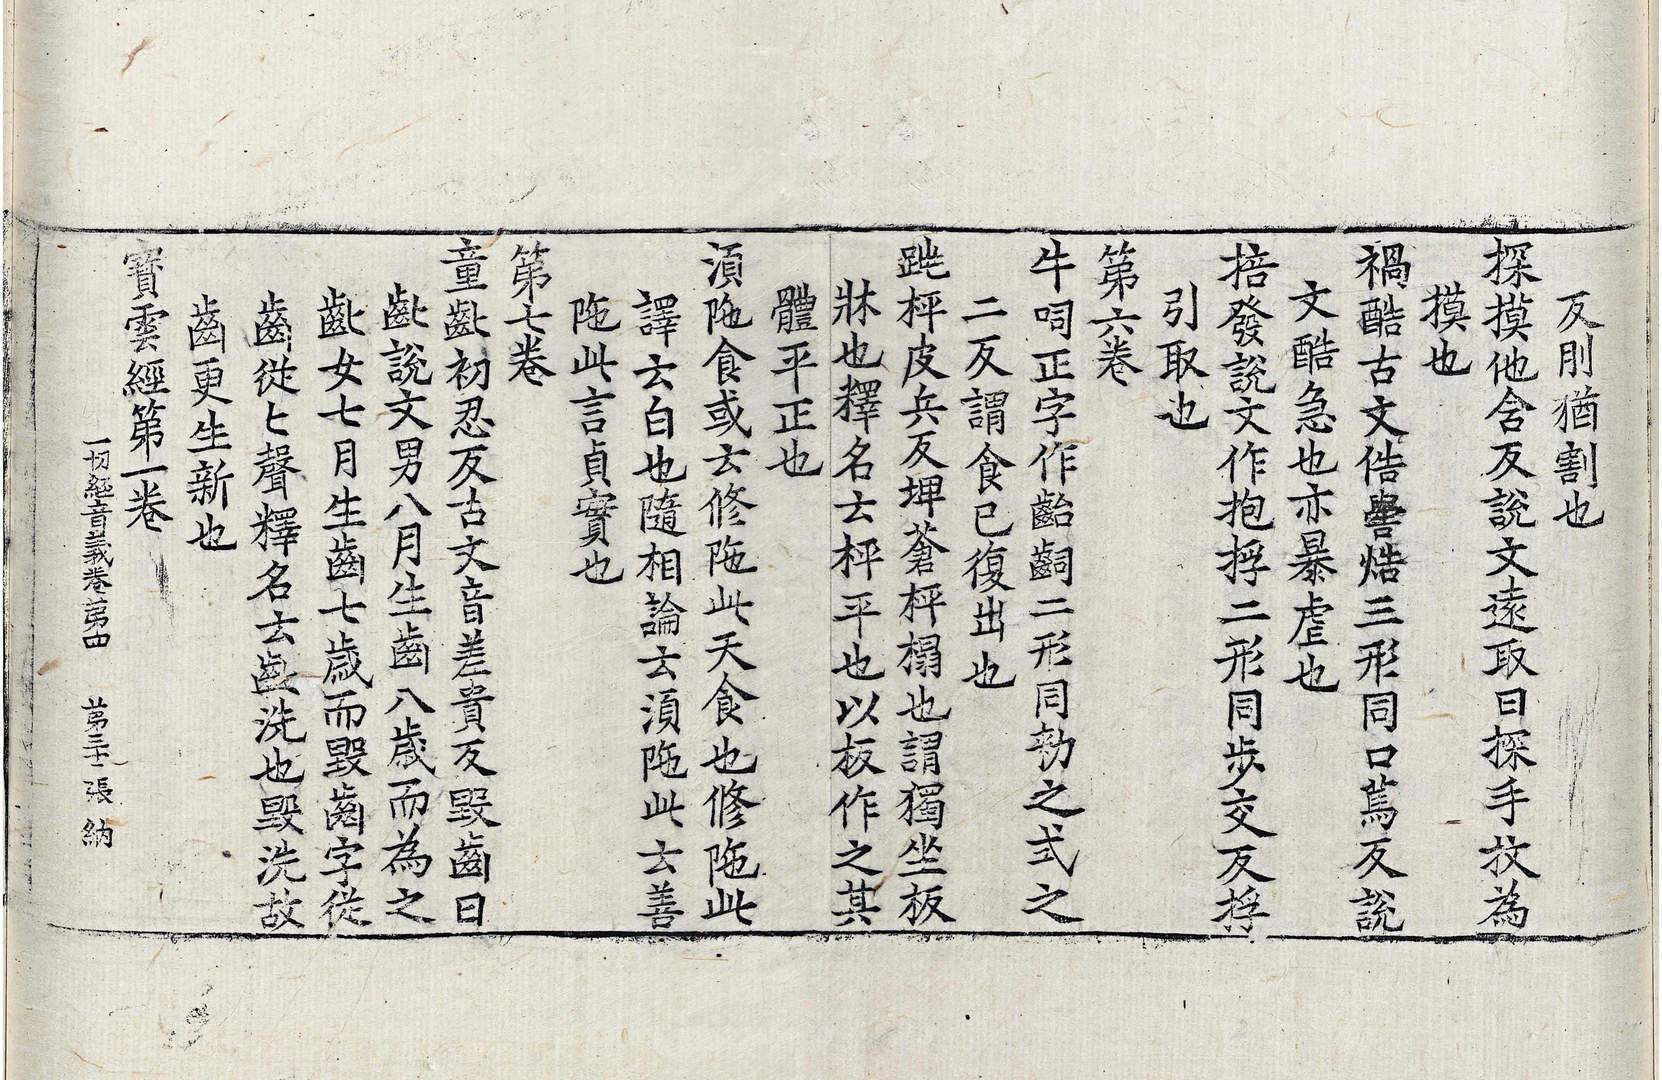 反刖猶割也
探摸他含反說文遠取曰探手𢪛為
摸也
禍酷古文俈嚳焅三形同口篤反說
文酷急也亦暴虐也
掊發說文作抱捊二形同步交反捊
引取也
第六卷
牛呞正字作齝齝二形同勑之式之
二反謂食已復出也
跣枰皮兵反埤蒼枰榻也謂獨坐板
牀也釋名云枰平也以板作之其
體平正也
湏陁食或云修陁此天食也修陁此
譯云白也隨相論云湏陁此云善
陁此言貞實也
第七卷
童齔初忍反古文音差貴反毀齒曰
齔說文男八月生齒八歲而為之
齔女七月生齒七歲而毀齒字從
齒從匕聲釋名云齔洗也毀洗故
齒更生新也
寶雲經第一卷
一切經音義卷第四 第三十二張 納